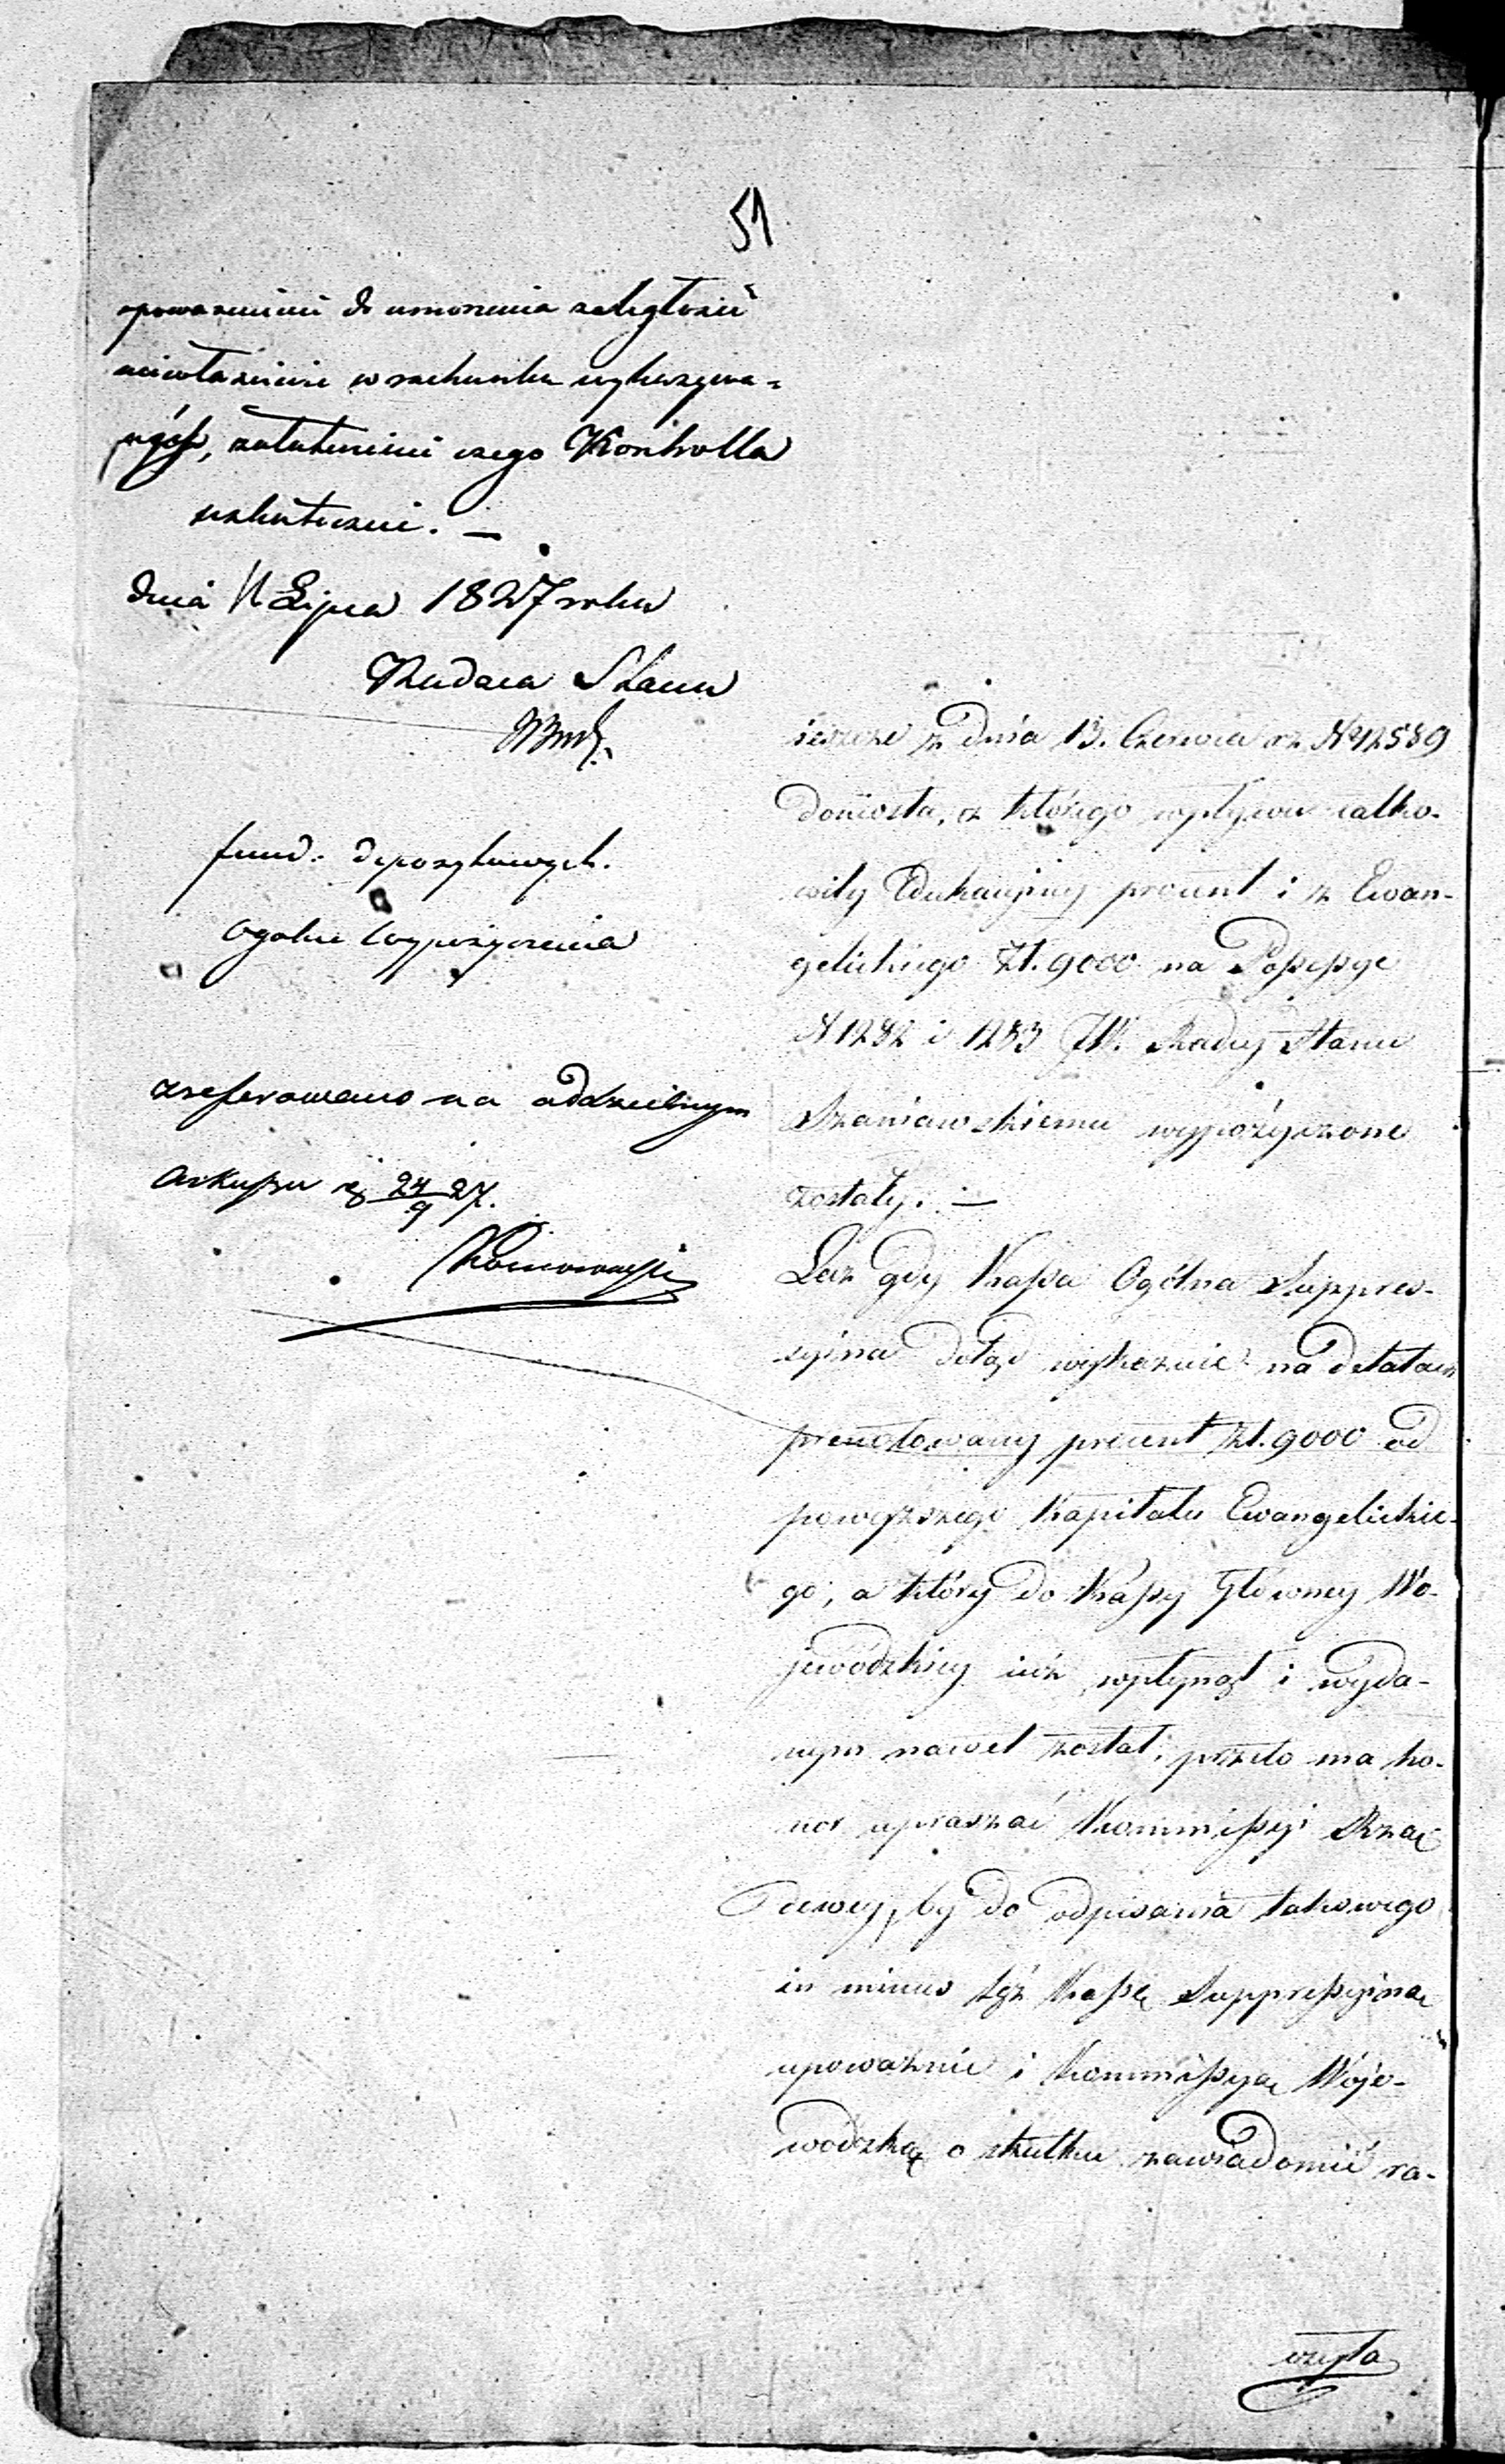 51
upoważnienie do umorzenia zaległości
niewłaściwie w rachunku wykazywa-
nych, załatwienie czego Kontrolla
uskuteczni. —
dnia 11 Lipca 1827 roku
Radzca Stanu
fund. depozytowych.
Ogólne Wypożyczenia
zreferowano na oddzielnym
Arkuszu 24/9 27.
ieszcze z dnia 13. Czerwca rz N° 12589
doniosła, z którego wpływu całko-
wity Edukacyiny procent i z Ewan-
gelickiego Zł. 9000 na Possessye
N 1282 i 1283 JW. Radcy Stanu
Szaniawskiemu wypożyczone
zostały. —
Lecz gdy Kassa Ogólna Suppres-
syina dotąd wykazuie na detalach
prenotowany procent Zł. 9000 od
powyższego Kapitału Ewangelickie-
go, a który do Kassy Główney Wo-
jewódzkiey iuż wpłynął i wyda-
nym nawet został; przeto ma ho-
nor upraszać Kommissyi Rzą-
dowey, by do odpisania takowego
in minus tęż Kassę Suppressyiną
upoważnić i Kommissyą Woje-
wódzką o skutku zawiadomić ra-
czyła